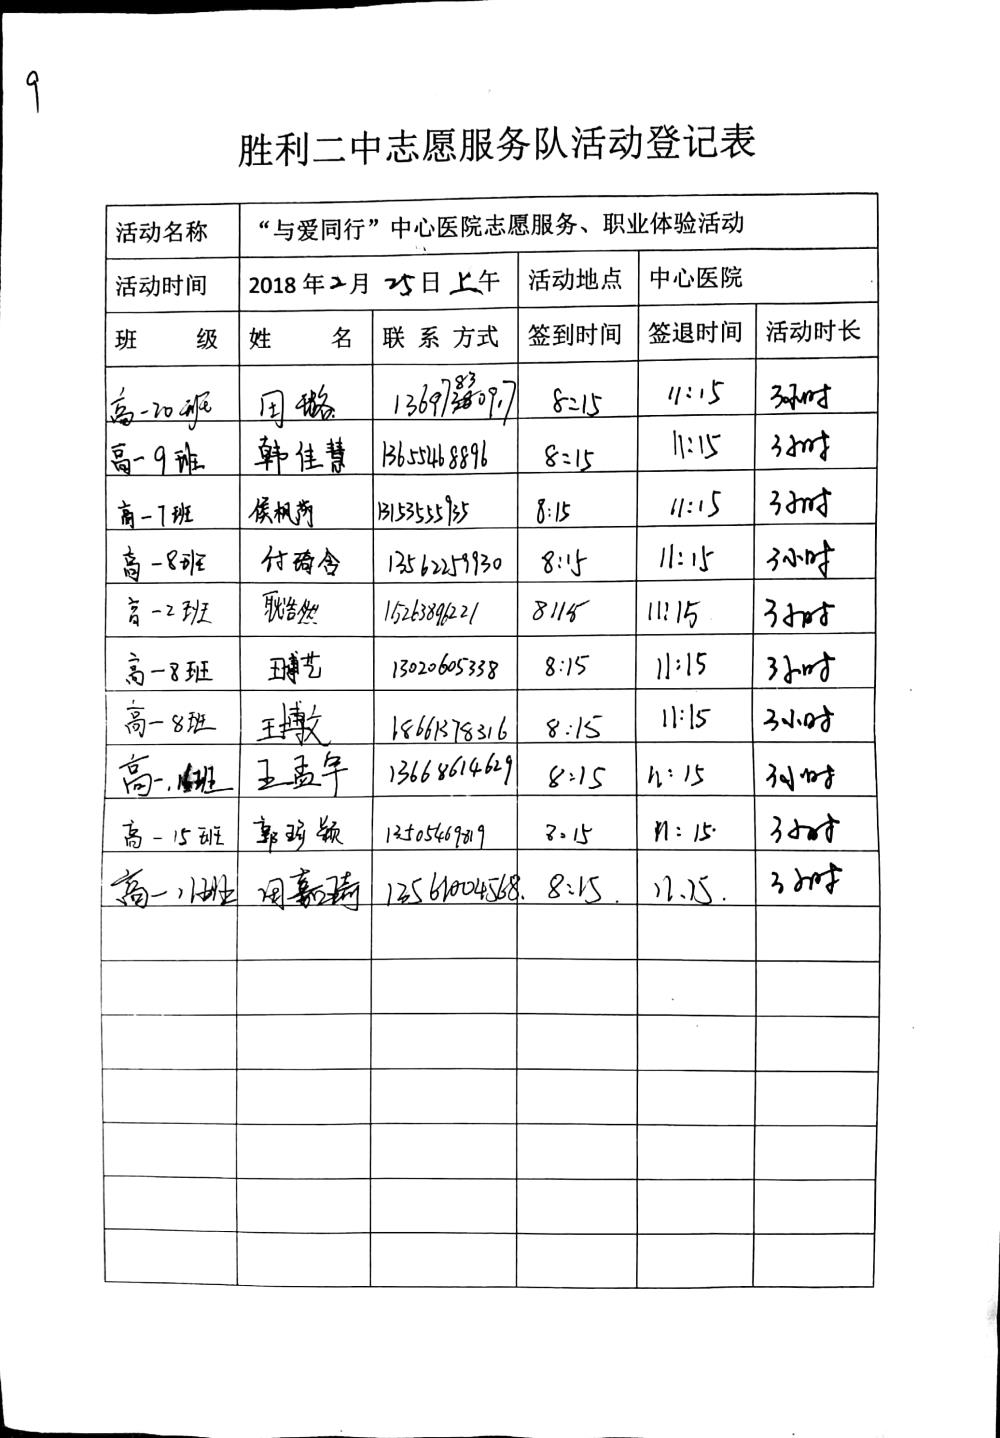 9
胜利二中志愿服务队活动登记表
活动名称 “与爱同行”中心医院志愿服务、职业体验活动
活动时间 2018年2月 25日上午 活动地点 中心医院
班 级 姓 名 联系方式 签到时间 签退时间 活动时长
高一20班 田璐 8:15 11:15 3小时
高一9班 韩佳慧 13655468896 8:15 11:15 3小时
高一7班 侯枫荷 13153555935 8:15 11:15 3小时
高一8班 付琦含 13562259930 8:15 11:15 3小时
高一2班 耿浩然 15263896221 8:15 11:15 3小时
高一8班 王博艺 13020605338 8:15 11:15 3小时
高一8班 王博文 18661378316 8:15 11:15 3小时
高一 班 王孟年 13668614629 8:15 11:15 3小时
高一15班 郭 颖 13505469819 8:15 11:15 3小时
高一 班 周嘉琦 13561004568 8:15 11:15 3小时